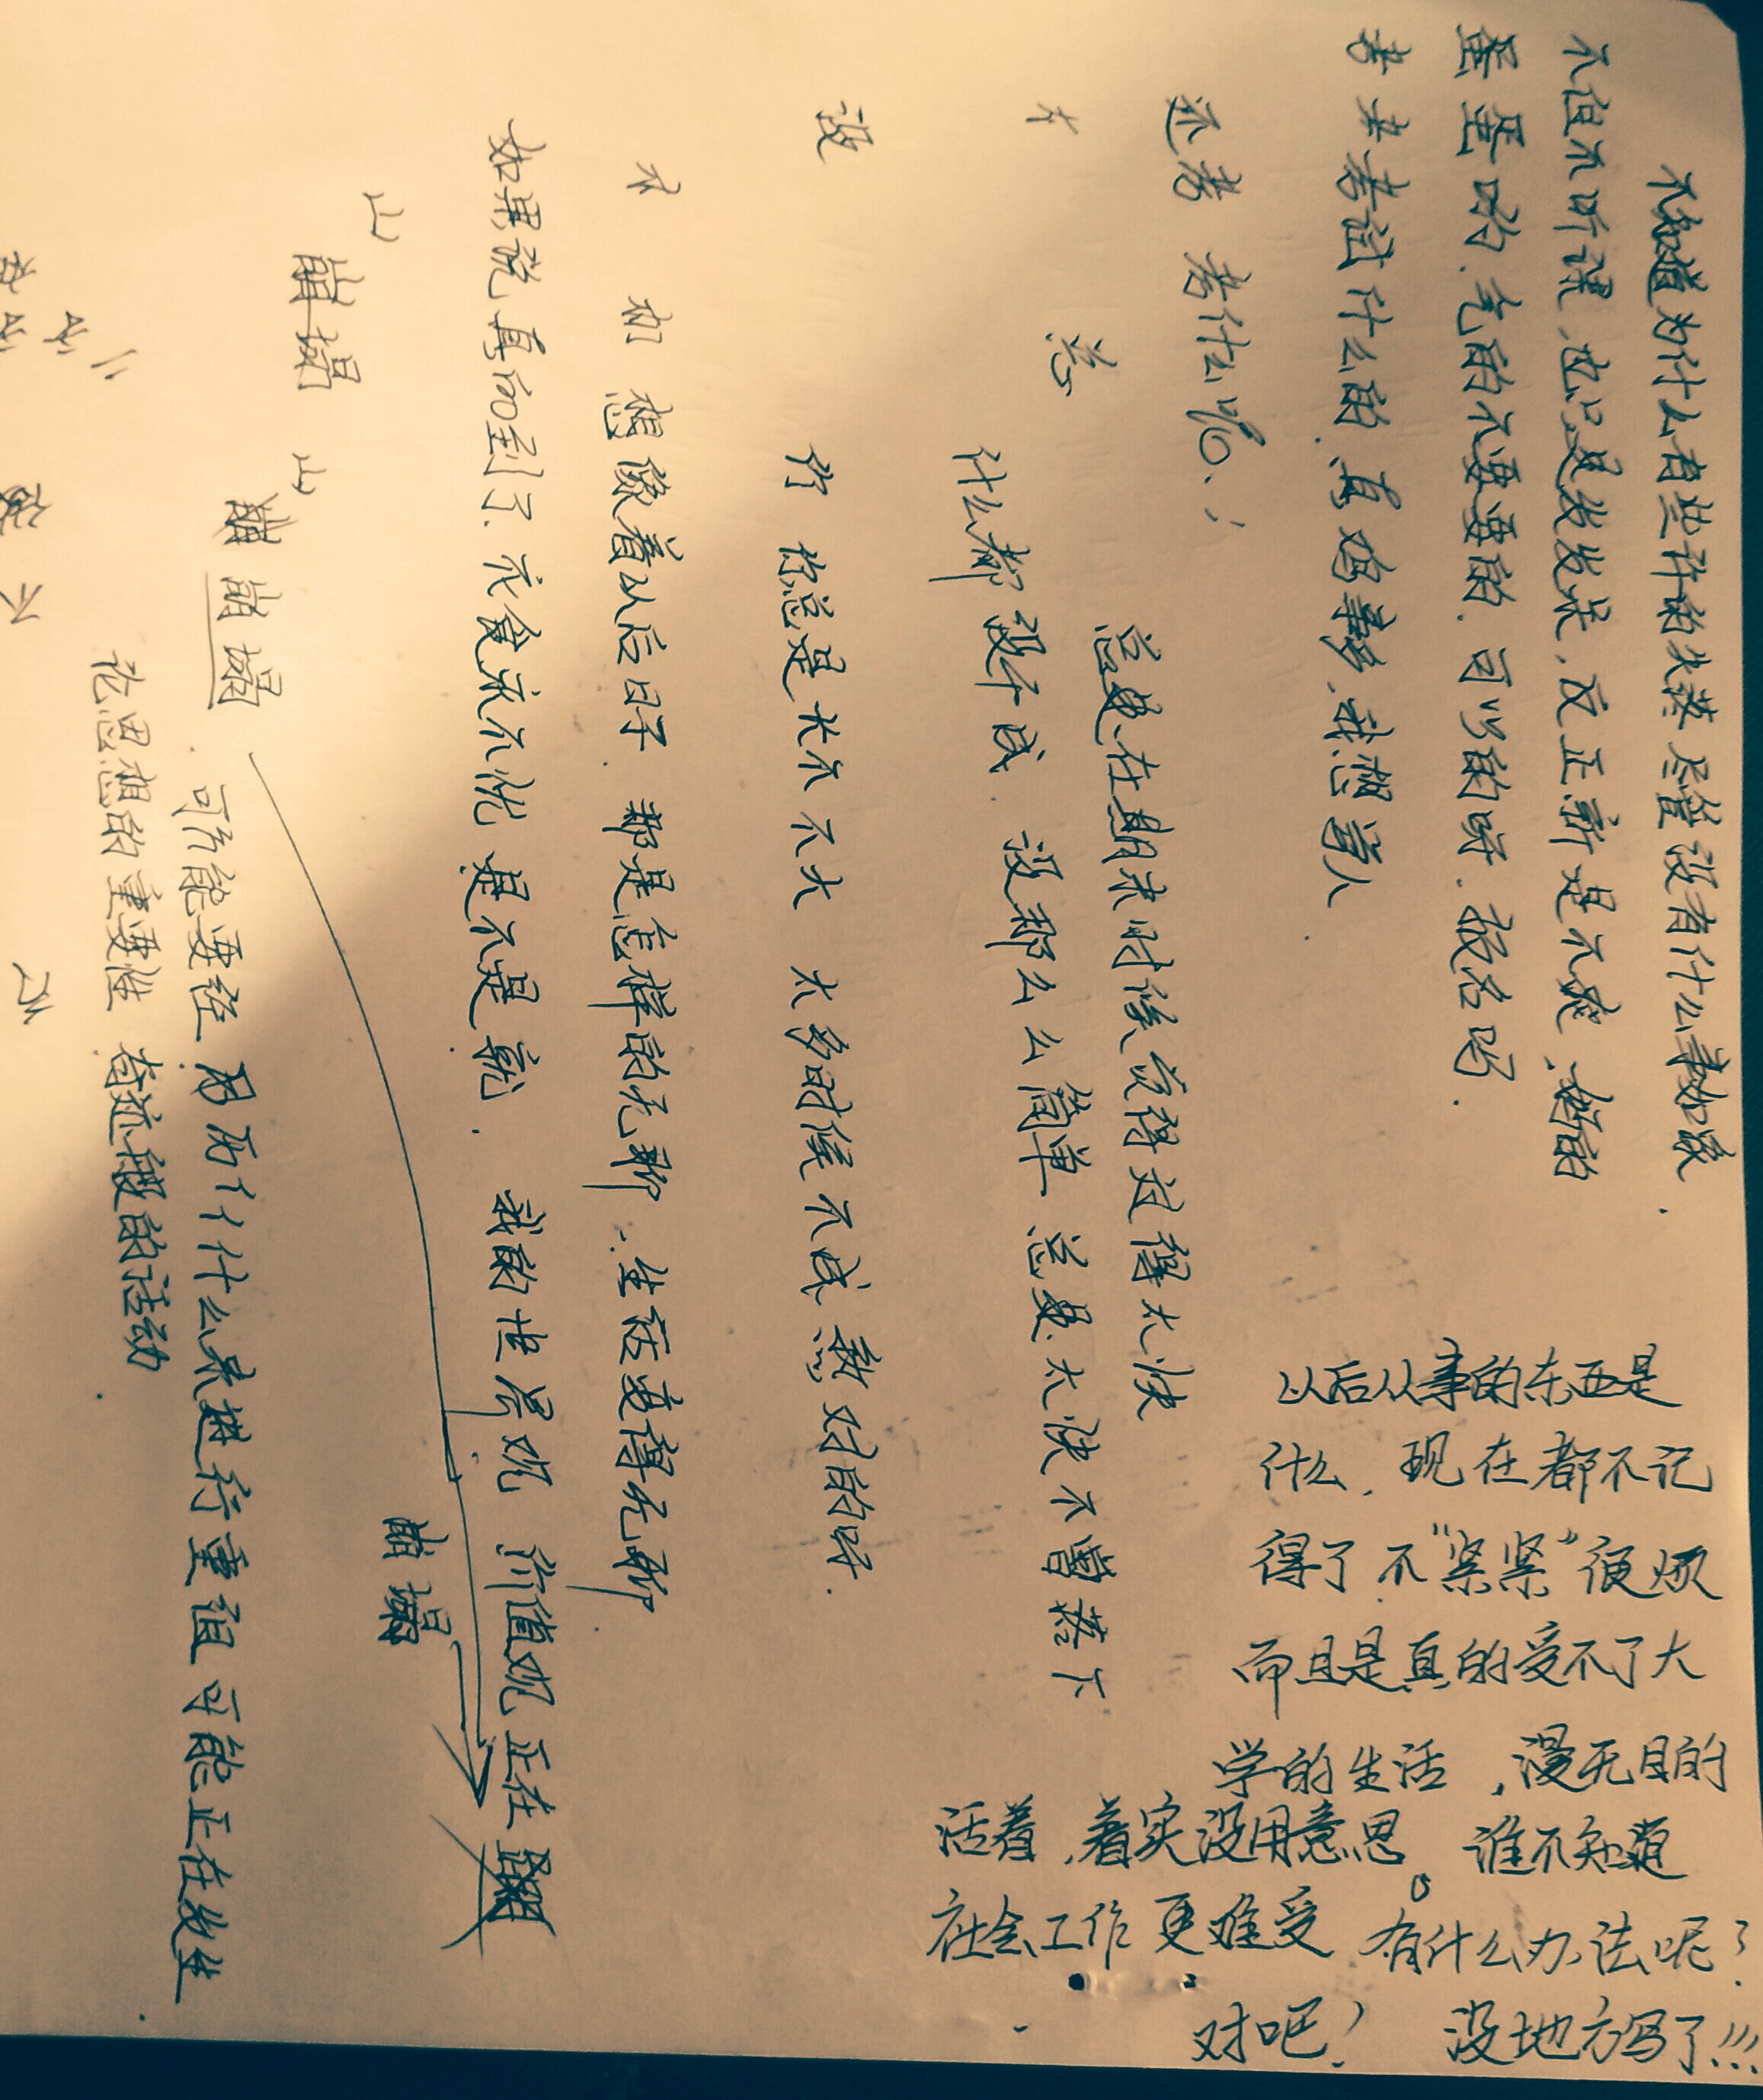 不知道为什么有些许的失落 尽管没有什么事如添.
不但不听课、也只是发发呆、反正新是不爽、新的
蛋蛋的、气的不要要的、可以的呀、报名吗.
考考考试什么的、真鸡事多、我想骂人
还考 考什么呢、
总是在期末时候变得过得太快
才 总
什么都 没干成、没那么么简单 总是太快不曾落下
没
你 你总是长不不大 太多时候不成熟对的呀.
不 想 想像着以后日子 都是怎样的无聊、生活变得无聊
如果说真的到了、衣食永不忧 是不是就. 我的世界观 价值观 正在
山 崩塌
崩塌
山 崩 崩塌
可能要经 用历什什么来进行重组 可能正在发生.
论思想的重要性 奇迹般的活动.
以后从事的东西是
什么、现在都不记
得了 不“紧紧”很烦
而且是真的受不了大
学的生活，漫无目的
活着，着实没用意思。谁不知道
社会工作更难受 有什么办法呢?
对吧? 没地方写了!!!